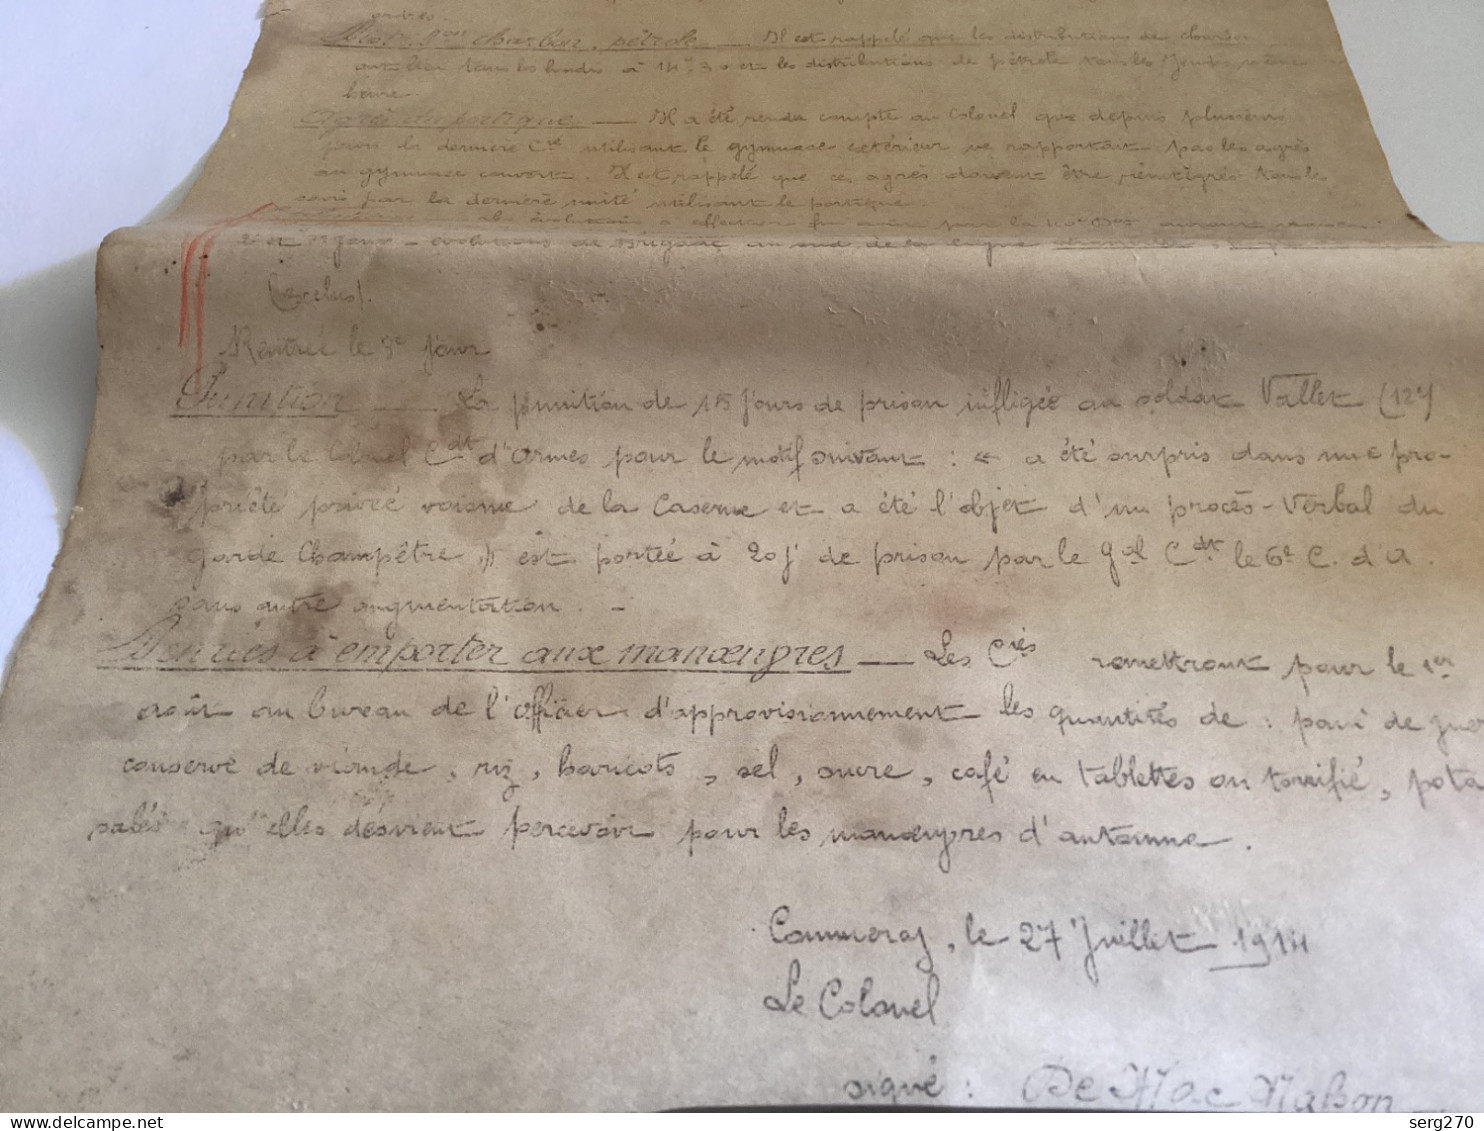 charbon, pétrole — Il est rappelé que les distributions de charbon
ont lieu tous les lundis à et les distributions de pétrole tous les même
heure.
Agrès du portique — Il a été rendu compte au Colonel que depuis plusieurs
jours la dernière Cie utilisant le gymnase extérieur ne rapportait pas les agrès
au gymnase couvert. Il est rappelé que ces agrès doivent être réintégrés tous les
soirs par la dernière unité utilisant le portique
évolutions de Brigade au sud de la ligne
(exclus).
Rentrée le 3e jour
Punition — La punition de 15 jours de prison infligée au soldat Vallet (12e)
par le Colonel Cdt d'Armes pour le motif suivant : « a été surpris dans une pro-
priété privée voisine de la Caserne et a été l'objet d'un procès-Verbal du
garde Champêtre » est portée à 20 j' de prison par le Gal Cdt le 6e C. d'A.
sans autre augmentation. -
Denrées à emporter aux manœuvres — Les Cies remettront pour le 1er
août au bureau de l'Officier d'approvisionnement les quantités de : pain de guer
conserve de viande, riz, haricots, sel, sucre, café en tablettes ou torrifié, pota
salés qu'elles desvient percevoir pour les manœuvres d'automne.
Commercy, le 27 Juillet 1914
Le Colonel
signé : De Mac Mahon
serg270